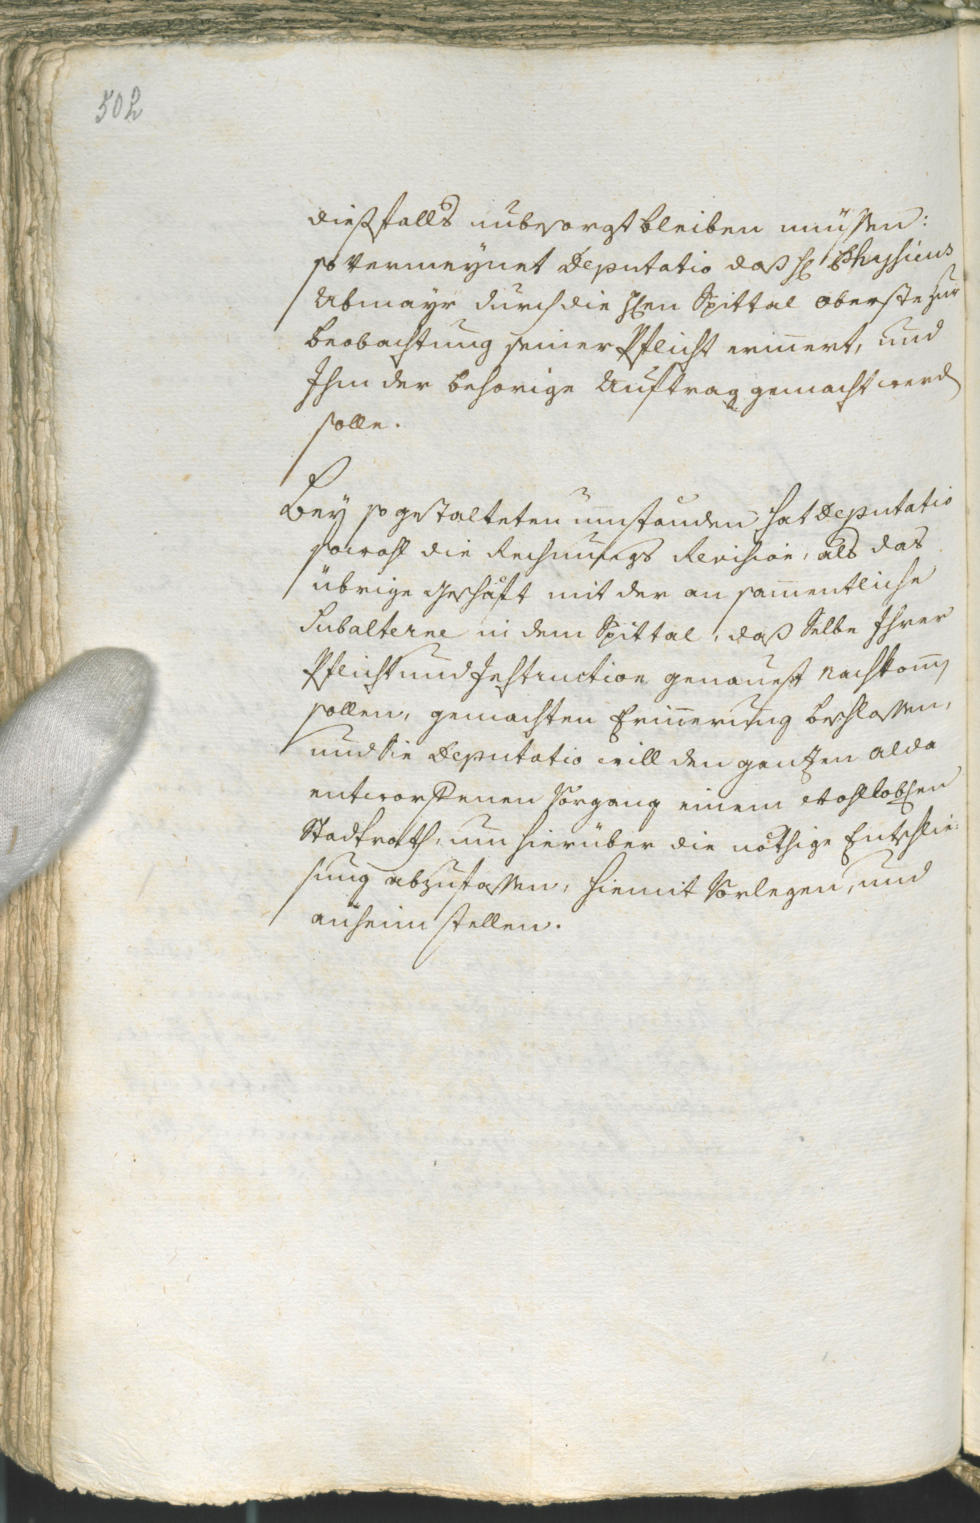 502
diesfalls unbesorgt bleiben müssen:
so vermeynet Deputatio daß H: Physicus
Abmayr durch die H:en Spittal oberste zur
beobachtung seiner Pflicht erin̄ert, und
Ihm der behorige Auftrag gemacht werd
solle.
Bey so gestalteten ümständen hat Deputatio
sowohl die Rechnungs Revision, als das
übrige Geschäft mit der an sam̄entliche
Subalterne in dem Spittal, daß Selbe Ihrer
Pflicht und Instruction genauest nachkom̄
sollen, gemachten Erin̄erung beschlossen,
und Sie Deputatio will den gantzen alda
entworffenen Vorgang einem wohllob:en
Stadtrath, um hierüber die nöthige Entschlie:
sung abzufassen, hiemit Vorlegen, und
anheim stellen.